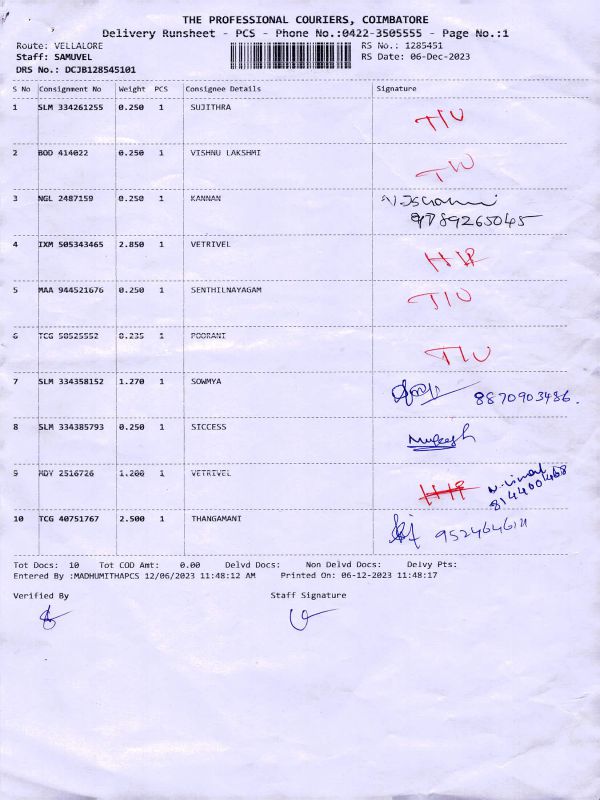 THE PROFESSIONAL COURIERS, COIMBATORE
Delivery Runsheet - PCS - Phone No.:0422-3505555 - Page No.:1
Route: VELLALORE RS No.: 1285451
Staff: SAMUVEL RS Date: 06-Dec-2023
DRS No.: DCJB128545101
S No Consignment No Weight PCS Consignee Details Signature
1 SLM 334261255 0.250 1 SUJITHRA TIU
2 BOD 414022 0.250 1 VISHNU LAKSHMI TIU
3 NGL 2487159 0.250 1 KANNAN
9789265045
4 IXM 505343465 2.850 1 VETRIVEL
5 MAA 944521676 0.250 1 SENTHILNAYAGAM TIU
6 TCG 50525552 0.235 1 POORANI TIU
7 SLM 334358152 1.270 1 SOWMYA 8870903486.
8 SLM 334385793 0.250 1 SICCESS Mugesh
9 MDY 2516726 1.200 1 VETRIVEL
8144001468
10 TCG 40751767 2.500 1 THANGAMANI
Tot Docs: 10 Tot COD Amt: 0.00 Delvd Docs: Non Delvd Docs: Delvy Pts:
Entered By :MADHUMITHAPCS 12/06/2023 11:48:12 AM Printed On: 06-12-2023 11:48:17
Verified By Staff Signature